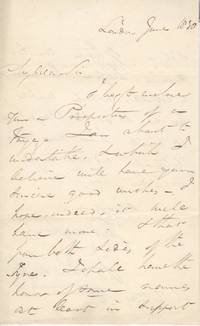 London June 1830
My dear Sir
I beg to enclose
you a Prospectus of a
I am about to
undertake, & which I
believe will have your
sincere good wishes - I
hope, indeed, it will
have more. & that
from both sides of the
Tyne. I shall have the
honor of some names
at least in support